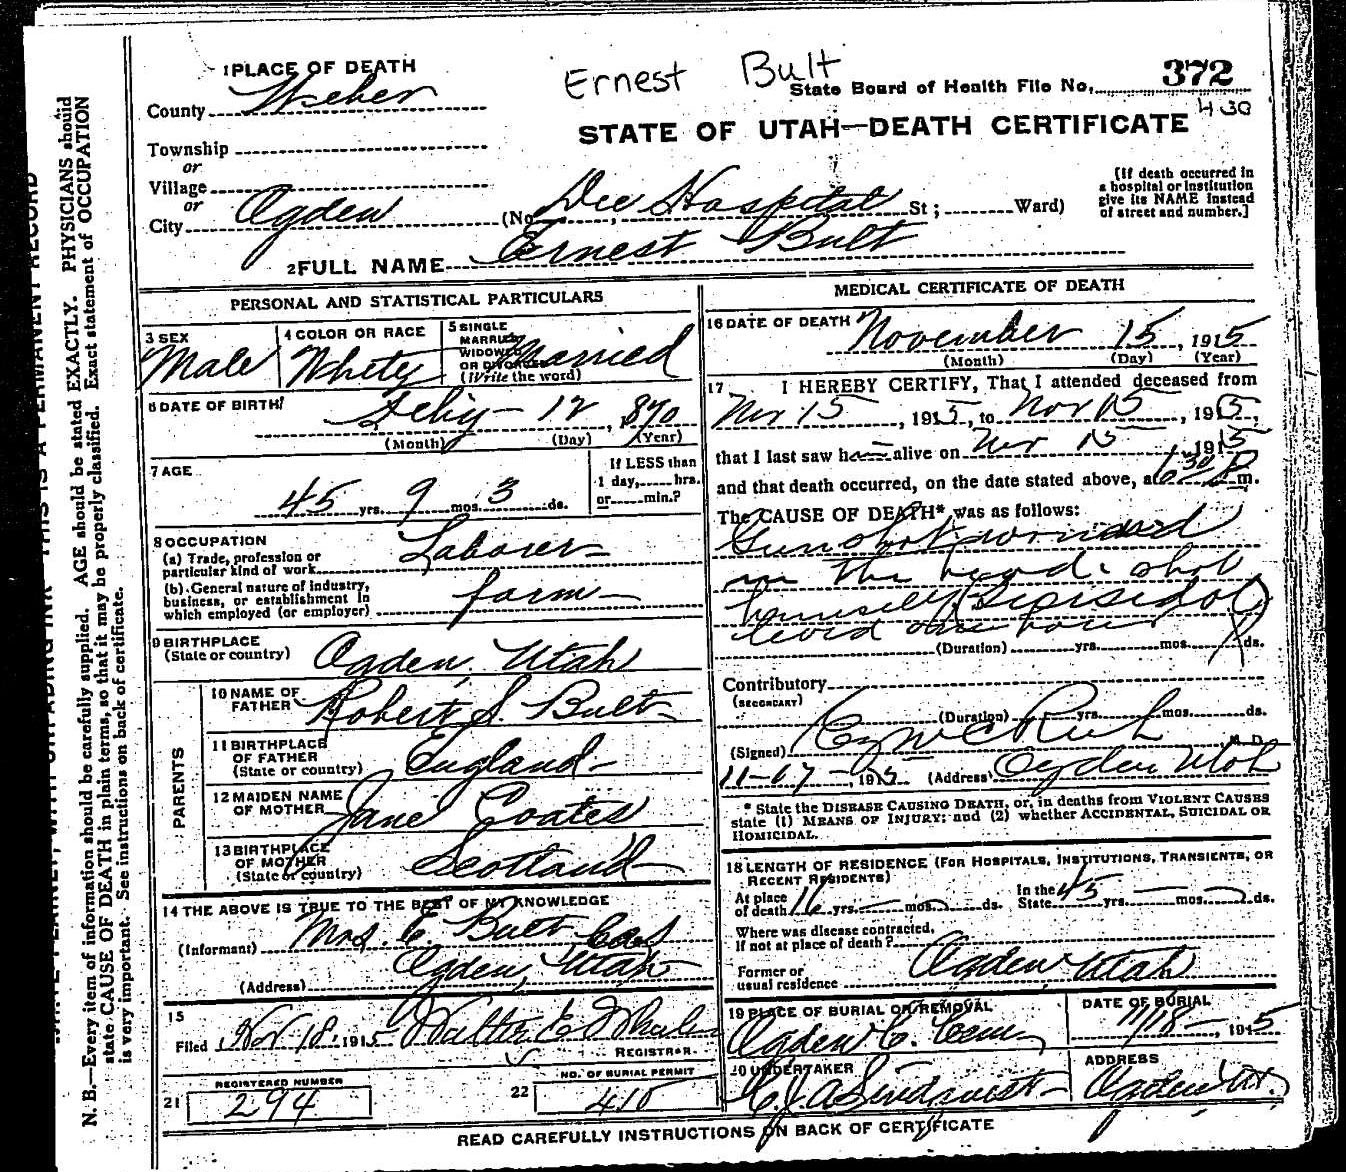 Ernest Bult
372
State Board of Health File No.
430
STATE OF UTAH—DEATH CERTIFICATE
1 PLACE OF DEATH
County Weber
Township
or
Village
or
City Ogden (No. Dee Hospital St; Ward)
[If death occurred in a hospital or institution give its NAME instead of street and number.]
2 FULL NAME Ernest Bult
PERSONAL AND STATISTICAL PARTICULARS
3 SEX Male
4 COLOR OR RACE White
5 SINGLE MARRIED WIDOWED OR DIVORCED (Write the word) Married
6 DATE OF BIRTH Feby – 12, 1870
(Month) (Day) (Year)
7 AGE 45 yrs. 9 mos. 3 ds.
If LESS than 1 day, hrs. or min.?
8 OCCUPATION
(a) Trade, profession or particular kind of work Laborer
(b) General nature of industry, business, or establishment in which employed (or employer) farm
9 BIRTHPLACE (State or country) Ogden, Utah
PARENTS
10 NAME OF FATHER Robert S. Bult
11 BIRTHPLACE OF FATHER (State or country) England
12 MAIDEN NAME OF MOTHER Jane Coates
13 BIRTHPLACE OF MOTHER (State or country) Scotland
14 THE ABOVE IS TRUE TO THE BEST OF MY KNOWLEDGE
(Informant) Mrs. E Bult
(Address) Ogden, Utah
15
Filed Nov 18, 1915 Walter E Whalen
REGISTRAR.
REGISTERED NUMBER
21 294
NO. OF BURIAL PERMIT
22 410
MEDICAL CERTIFICATE OF DEATH
16 DATE OF DEATH November 15, 1915
(Month) (Day) (Year)
17 I HEREBY CERTIFY, That I attended deceased from
Nov 15, 1915, to Nov 15, 1915,
that I last saw h alive on Nov 15, 1915
and that death occurred, on the date stated above, at 6 30 P m.
The CAUSE OF DEATH* was as follows:
Gunshot wound
in the head. shot
himself
lived one hour
(Duration) yrs. mos. ds.
Contributory
(SECONDARY)
(Duration) yrs. mos. ds.
(Signed) M. D.
11-17-1915 (Address) Ogden Utah
* State the DISEASE CAUSING DEATH, or, in deaths from VIOLENT CAUSES state (1) MEANS OF INJURY; and (2) whether ACCIDENTAL, SUICIDAL OR HOMICIDAL.
18 LENGTH OF RESIDENCE (FOR HOSPITALS, INSTITUTIONS, TRANSIENTS, OR RECENT RESIDENTS)
At place of death 16 yrs. mos. ds. In the State 45 yrs. mos. ds.
Where was disease contracted, if not at place of death?
Former or usual residence Ogden Utah
19 PLACE OF BURIAL OR REMOVAL Ogden C. Cem
DATE OF BURIAL 11/18 – 1915
20 UNDERTAKER
ADDRESS Ogden Ut.
READ CAREFULLY INSTRUCTIONS ON BACK OF CERTIFICATE
THIS IS A PERMANENT RECORD
N. B.—Every item of information should be carefully supplied. AGE should be stated EXACTLY. PHYSICIANS should
state CAUSE OF DEATH in plain terms, so that it may be properly classified. Exact statement of OCCUPATION
is very important. See instructions on back of certificate.